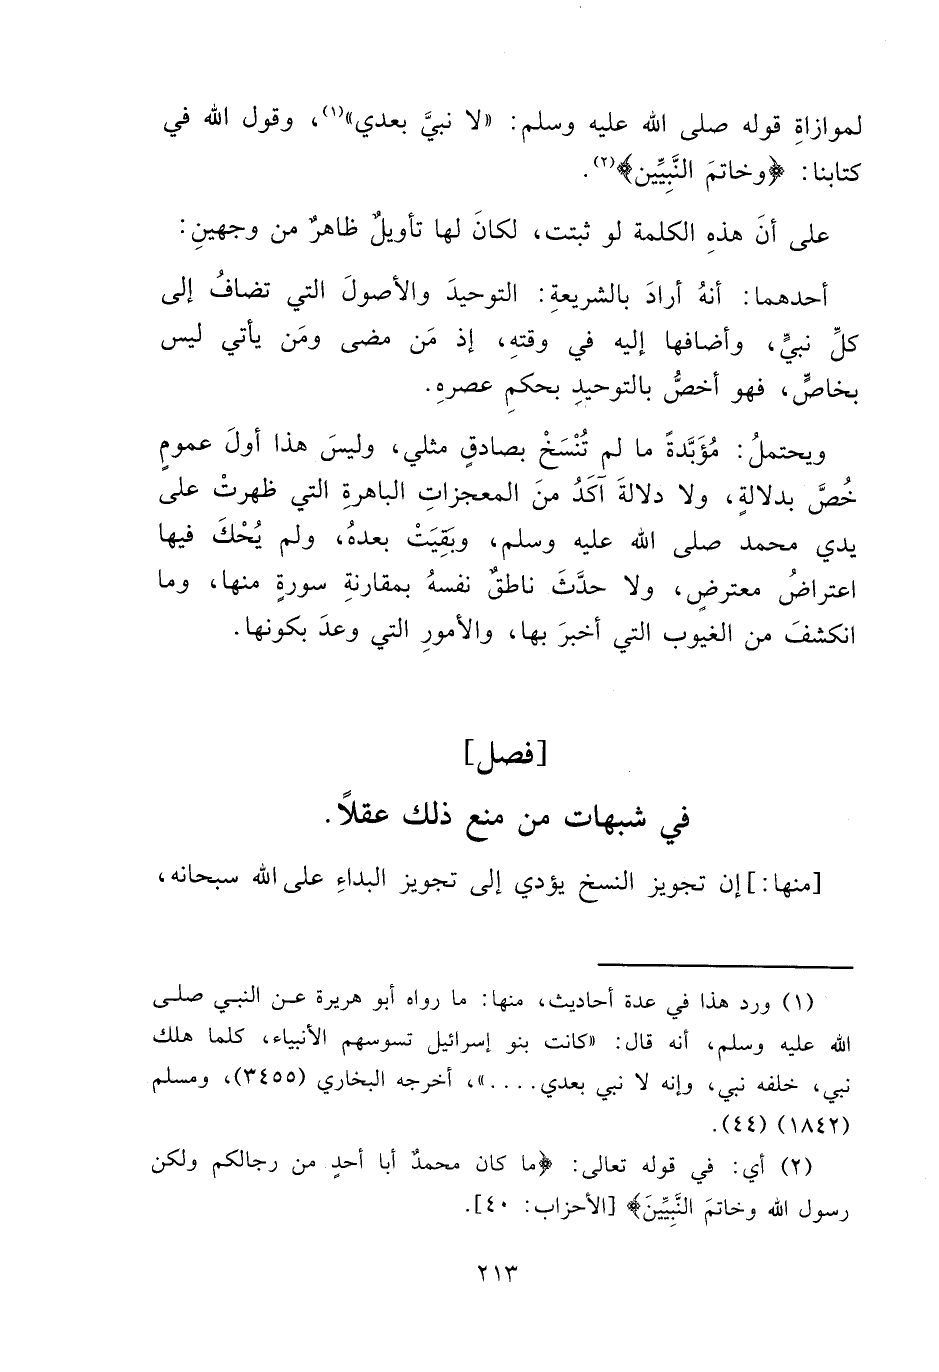 لموازاةِ قوله صلى الله عليه وسلم: «لا نبيَّ بعدي»(١)، وقول الله في
كتابنا: ﴿وخاتمَ النَّبِيِّين﴾(٢).
على أنَ هذهِ الكلمة لو ثبتت، لكانَ لها تأويلٌ ظاهرٌ من وجهينِ:
أحدهما: أنهُ أرادَ بالشريعةِ: التوحيدَ والأصولَ التي تضافُ إلى
كلِّ نبيٍّ، وأضافها إليه في وقتهِ، إذ مَن مضى ومَن يأتي ليس
بخاصٍّ، فهو أخصُّ بالتوحيدِ بحكمِ عصرهِ.
ويحتملُ: مُؤَبَّدةً ما لم تُنْسَخْ بصادقٍ مثلي، وليسَ هذا أولَ عمومٍ
خُصَّ بدلالةٍ، ولا دلالةَ آكَدُ منَ المعجزاتِ الباهرةِ التي ظهرتْ على
يدي محمد صلى الله عليه وسلم، وبَقِيَتْ بعدهُ، ولم يُحْكَ فيها
اعتراضُ معترضٍ، ولا حدَّثَ ناطقٌ نفسهُ بمقارنةِ سورةٍ منها، وما
انكشفَ من الغيوب التي أخبرَ بها، والأمورِ التي وعدَ بكونها.
[فصل]
في شبهات من منع ذلك عقلاً.
[منها:] إن تجويز النسخ يؤدي إلى تجويز البداءِ على الله سبحانه،
(١) ورد هذا في عدة أحاديث، منها: ما رواه أبو هريرة عن النبي صلى
الله عليه وسلم، أنه قال: «كانت بنو إسرائيل تسوسهم الأنبياء، كلما هلك
نبي، خلفه نبي، وإنه لا نبي بعدي....»، أخرجه البخاري (٣٤٥٥)، ومسلم
(١٨٤٢) (٤٤).
(٢) أي: في قوله تعالى: ﴿ما كان محمدٌ أبا أحدٍ من رجالكم ولكن
رسول الله وخاتمَ النَّبِيِّينَ﴾ [الأحزاب: ٤٠].
٢١٣